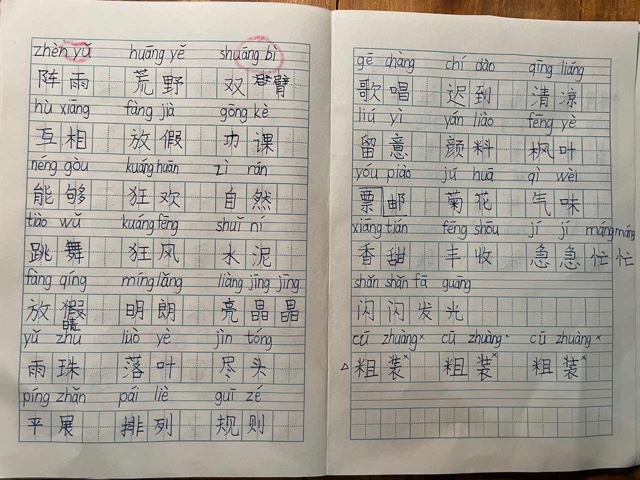 zhèn yǔ huāng yě shuāng bì
阵雨 荒野 双臂
hù xiāng fàng jià gōng kè
互相 放假 功课
néng gòu kuáng huān zì rán
能够 狂欢 自然
tiào wǔ kuáng fēng shuǐ ní
跳舞 狂风 水泥
fàng qíng míng lǎng liàng jīng jīng
放晴 明朗 亮晶晶
yǔ zhū luò yè jìn tóu
雨珠 落叶 尽头
píng zhǎn pái liè guī zé
平展 排列 规则
gē chàng chí dào qīng liáng
歌唱 迟到 清凉
liú yì yán liào fēng yè
留意 颜料 枫叶
yóu piào jú huā qì wèi
票邮 菊花 气味
xiāng tián fēng shōu jí jí máng máng
香甜 丰收 急急忙忙
shǎn shǎn fā guāng
闪闪发光
cū zhuàng× cū zhuàng× cū zhuàng×
△粗装× 粗装× 粗装×